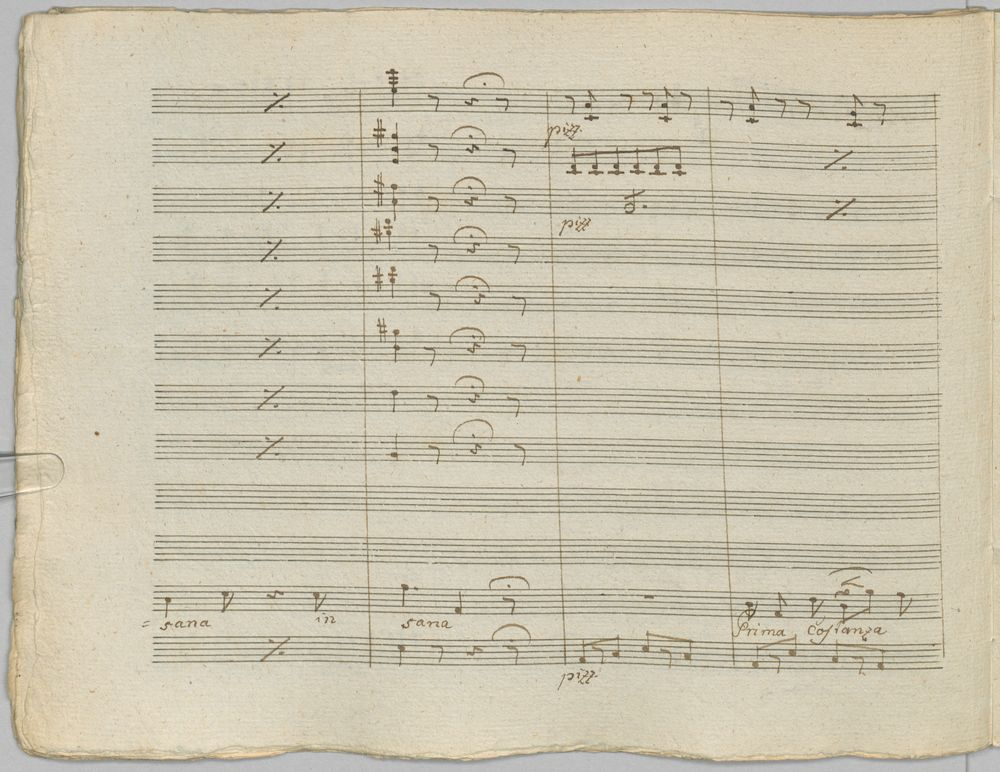 pizz
pizz
= sana in sana Prima Costanza
pizz